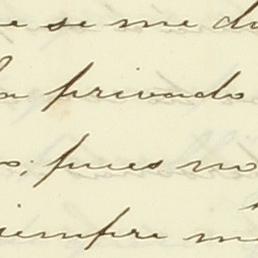 e se me di
la privado
o; pues no
siempre mi